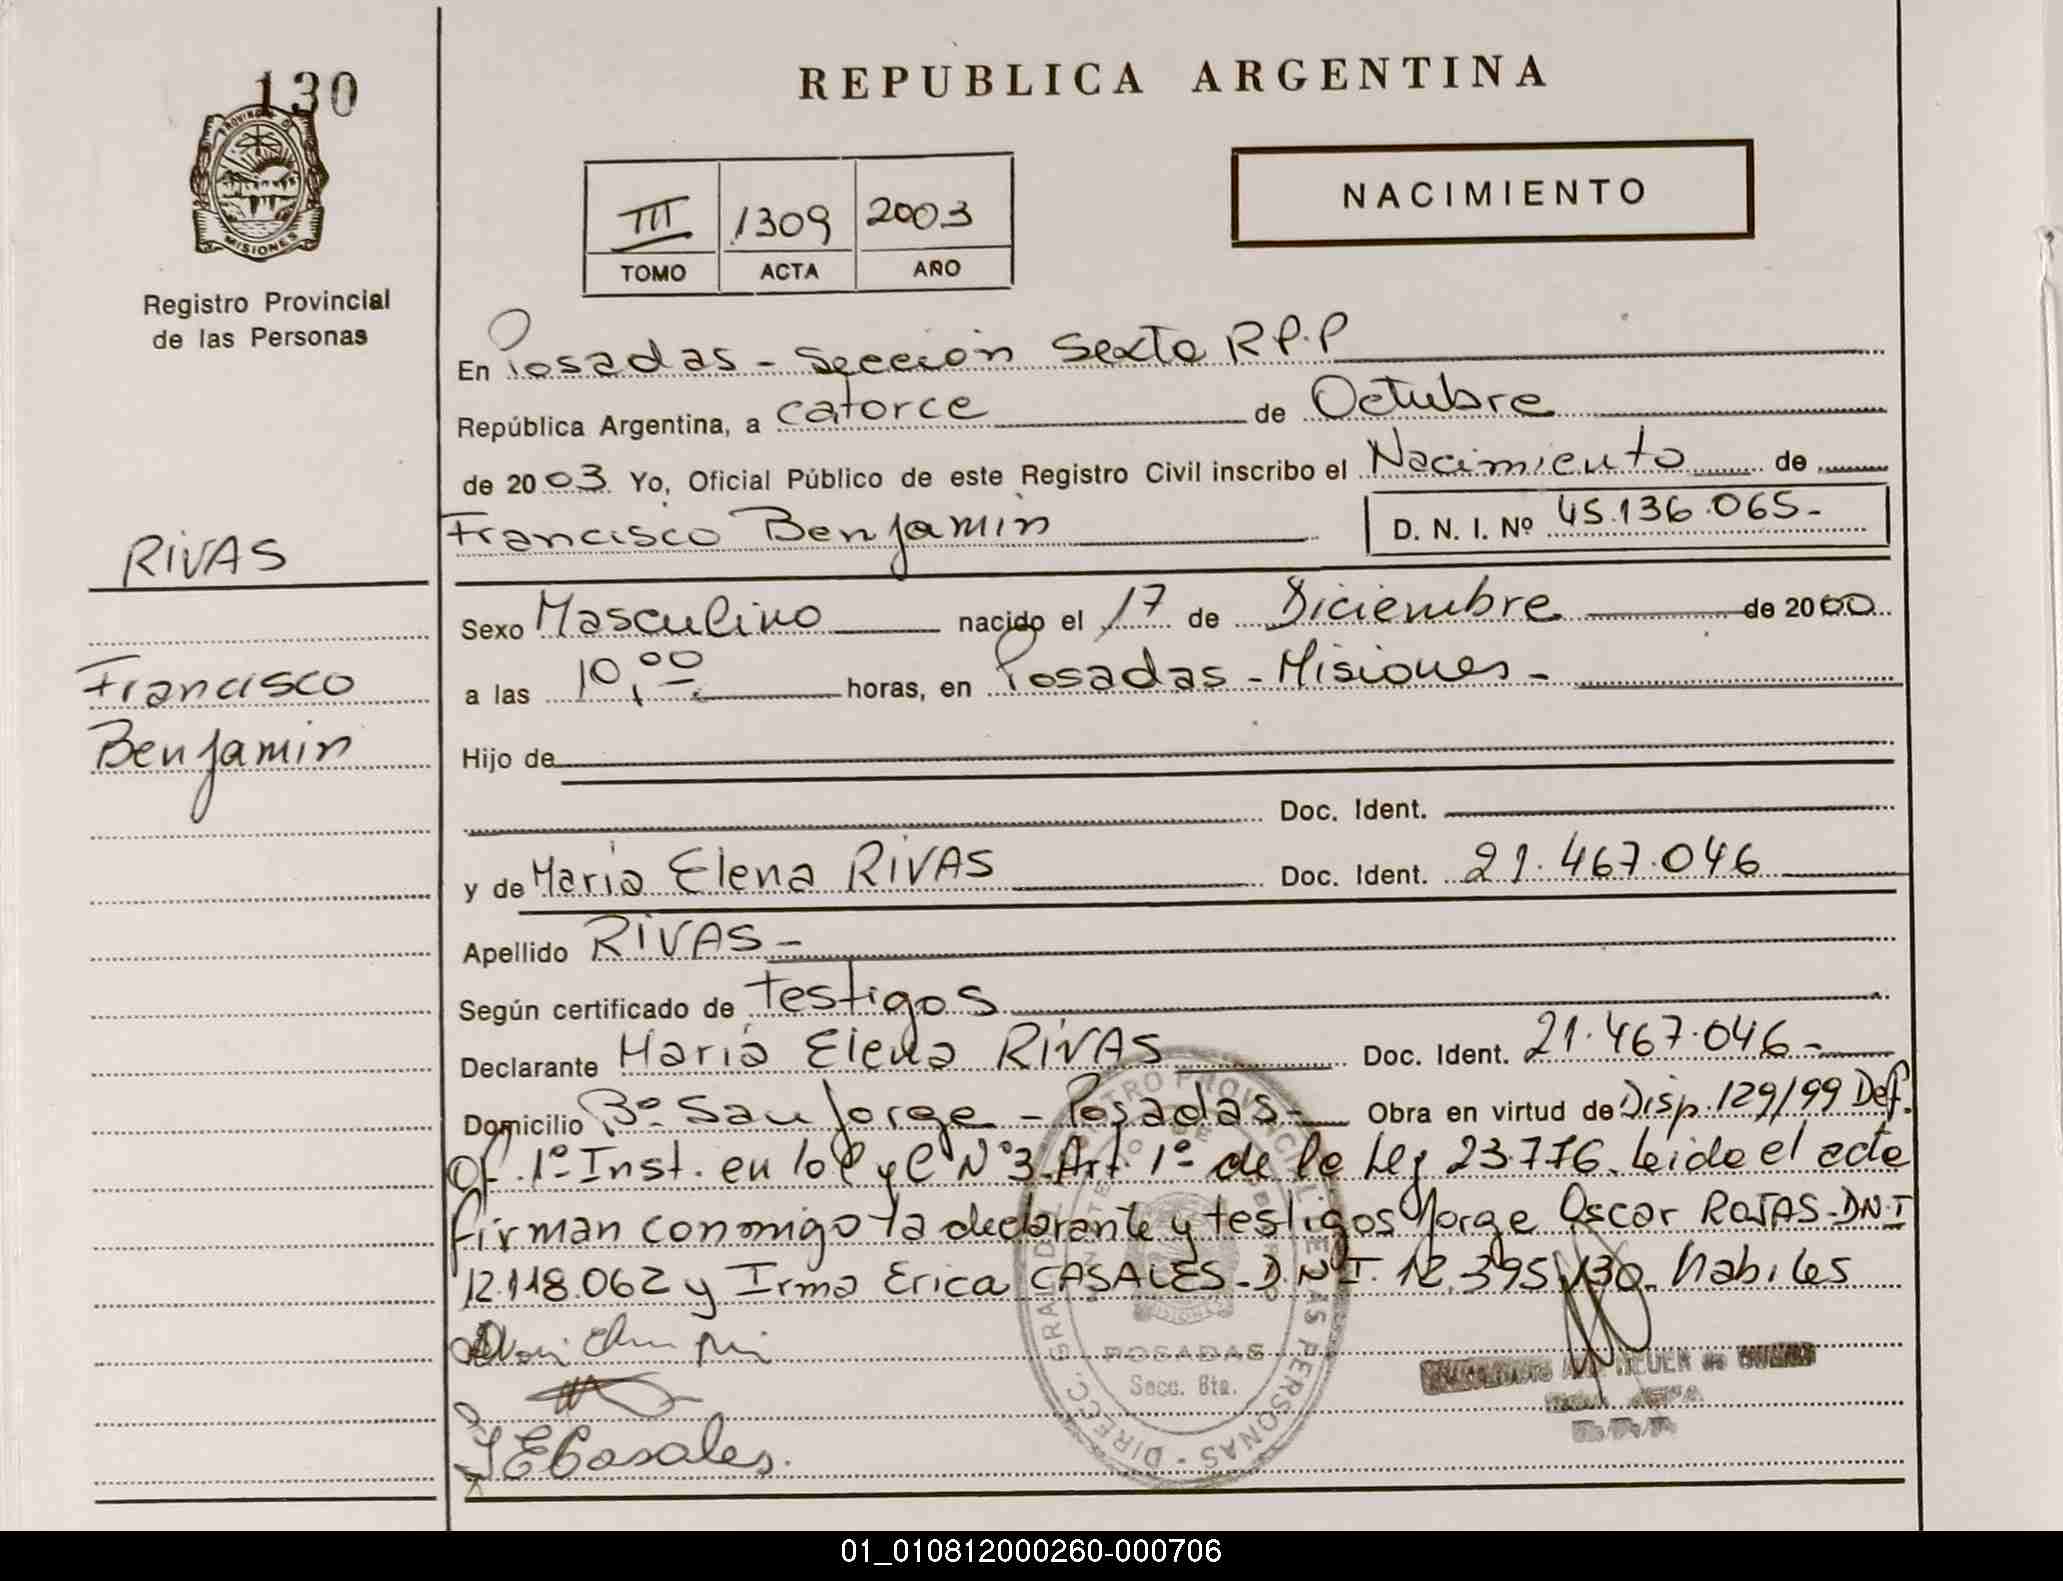 130
PROVINCIA DE
MISIONES
Registro Provincial
de las Personas
REPUBLICA ARGENTINA
III 1309 2003
TOMO ACTA AÑO
NACIMIENTO
En Posadas - Sección Sexta R.P.P
República Argentina, a catorce de Octubre
de 2003 Yo, Oficial Público de este Registro Civil inscribo el Nacimiento de
Francisco Benjamin D. N. I. Nº 45.136.065-
RIVAS
Francisco
Benjamin
Sexo Masculino nacido el 17 de Diciembre de 2000
a las 10,00 horas, en Posadas - Misiones -
Hijo de
Doc. Ident.
y de Maria Elena RIVAS Doc. Ident. 21.467.046
Apellido RIVAS -
Según certificado de testigos
Declarante Maria Elena RIVAS Doc. Ident. 21.467.046-
Domicilio Bº San Jorge - Posadas - Obra en virtud de Disp. 129/99 Def.
Of. 1º Inst. en lo C y C Nº 3. Art. 1º de la Ley 23.776. Leida el acta
firman conmigo la declarante y testigos Jorge Oscar ROJAS - D.N.I
12.118.062 y Irma Erica CASALES - D.N.I. 12.395.130. habiles
POSADAS
Secc. 6ta.
DIRECC. GRAL. DEL REGISTRO PROVINCIAL DE LAS PERSONAS
I E Casales.
01_010812000260-000706